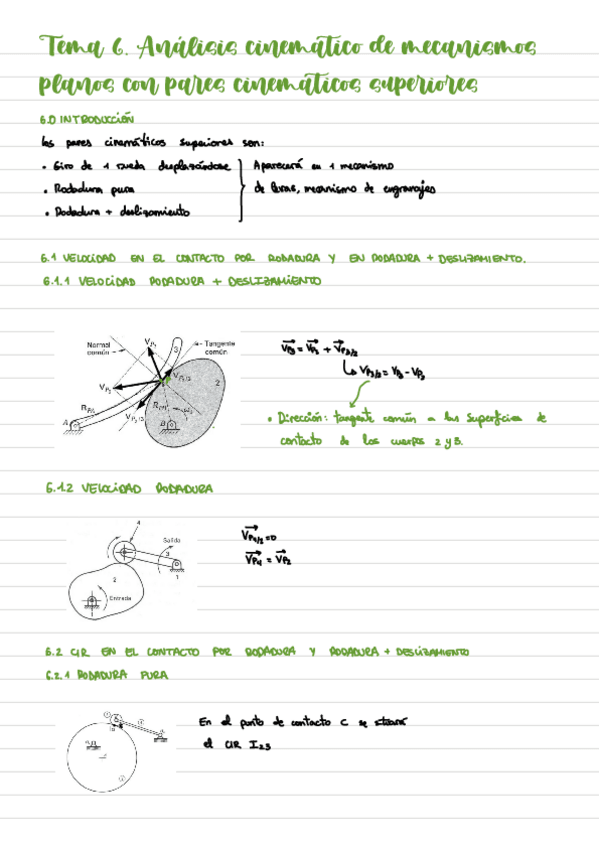 Tema 6. Análisis cinemático de mecanismos
planos con pares cinemáticos superiores
6.0 INTRODUCCIÓN
Los pares cinemáticos superiores son:
• Giro de 1 rueda desplazándose
• Rodadura pura
• Rodadura + deslizamiento
Aparecerá en 1 mecanismo
de levas, mecanismo de engranajes
6.1 VELOCIDAD EN EL CONTACTO POR RODADURA Y EN RODADURA + DESLIZAMIENTO.
6.1.1 VELOCIDAD RODADURA + DESLIZAMIENTO
Normal
común
Tangente
común
V_P3
3
2
V_P3/2
V_P2
V_P2/3
A
B
• Dirección: tangente común a las superficies de
contacto de los cuerpos 2 y 3.
6.1.2 VELOCIDAD RODADURA
4
Salida
3
1
2
Entrada
V_P4/2 = 0
V_P4 = V_P2
6.2 CIR EN EL CONTACTO POR RODADURA Y RODADURA + DESLIZAMIENTO
6.2.1 RODADURA PURA
En el punto de contacto C se situará
el CIR I23